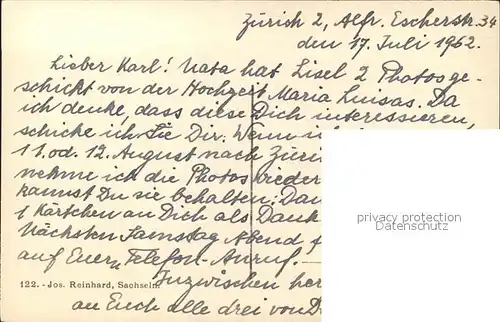 Zürich 2, Alfr. Escherstr. 34
den 17. Juli 1962.
Lieber Karl! Nata hat Lisel 2 Photos ge-
schickt von der Hochzeit Maria Luisas. Da
ich denke, dass diese Dich interessieren,
schicke ich Sie Dir. Wenn
11. od. 12. August nach Züri
nehme ich die Photos wieder
kannst Du sie behalten. Da
1 Kärtchen an Dich als Dank
Nächsten Samstag Abend
auf Euern Telefon-Anruf.
Inzwischen her
an Euch alle drei von D
privacy protection
Datenschutz
122. - Jos. Reinhard, Sachseln